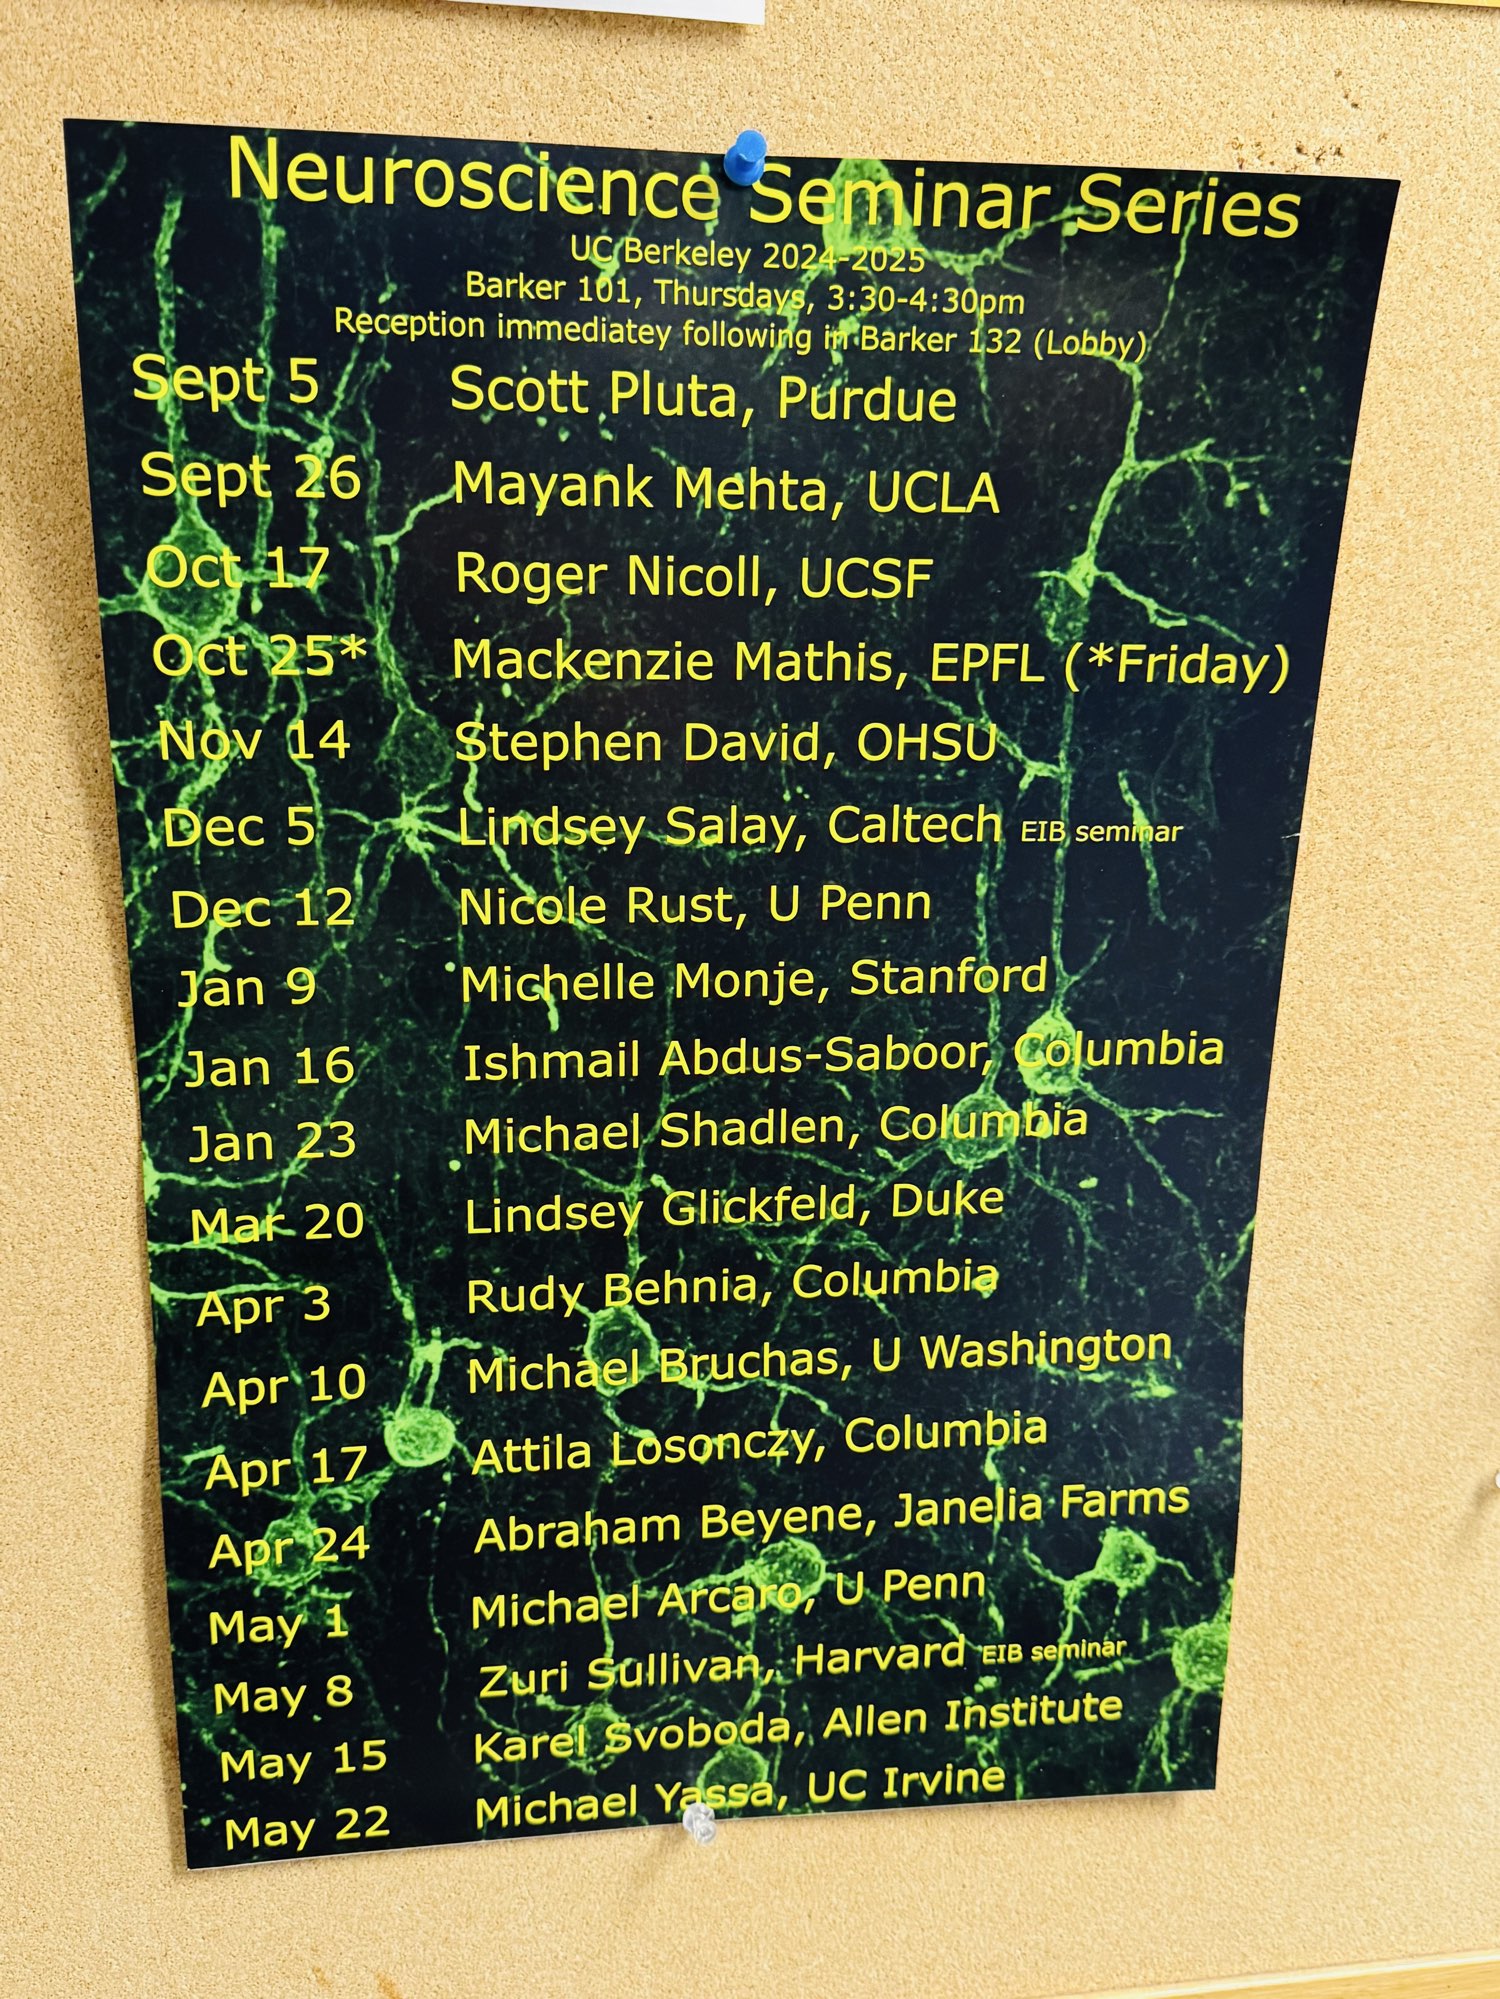 Neuroscience Seminar Series
UC Berkeley 2024-2025
Barker 101, Thursdays, 3:30-4:30pm
Reception immediatey following in Barker 132 (Lobby)
Sept 5 Scott Pluta, Purdue
Sept 26 Mayank Mehta, UCLA
Oct 17 Roger Nicoll, UCSF
Oct 25* Mackenzie Mathis, EPFL (*Friday)
Nov 14 Stephen David, OHSU
Dec 5 Lindsey Salay, Caltech EIB seminar
Dec 12 Nicole Rust, U Penn
Jan 9 Michelle Monje, Stanford
Jan 16 Ishmail Abdus-Saboor, Columbia
Jan 23 Michael Shadlen, Columbia
Mar 20 Lindsey Glickfeld, Duke
Apr 3 Rudy Behnia, Columbia
Apr 10 Michael Bruchas, U Washington
Apr 17 Attila Losonczy, Columbia
Apr 24 Abraham Beyene, Janelia Farms
May 1 Michael Arcaro, U Penn
May 8 Zuri Sullivan, Harvard EIB seminar
May 15 Karel Svoboda, Allen Institute
May 22 Michael Yassa, UC Irvine